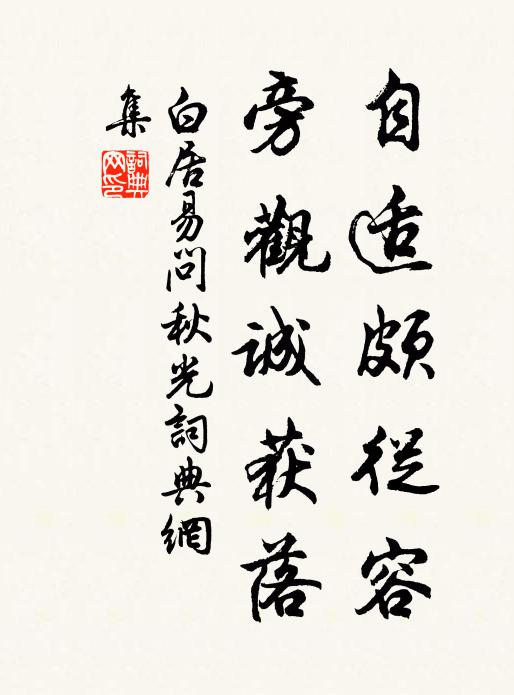 自适頗從容
旁觀誠获落
白居易問秋光詞典網
集
詞典
网印